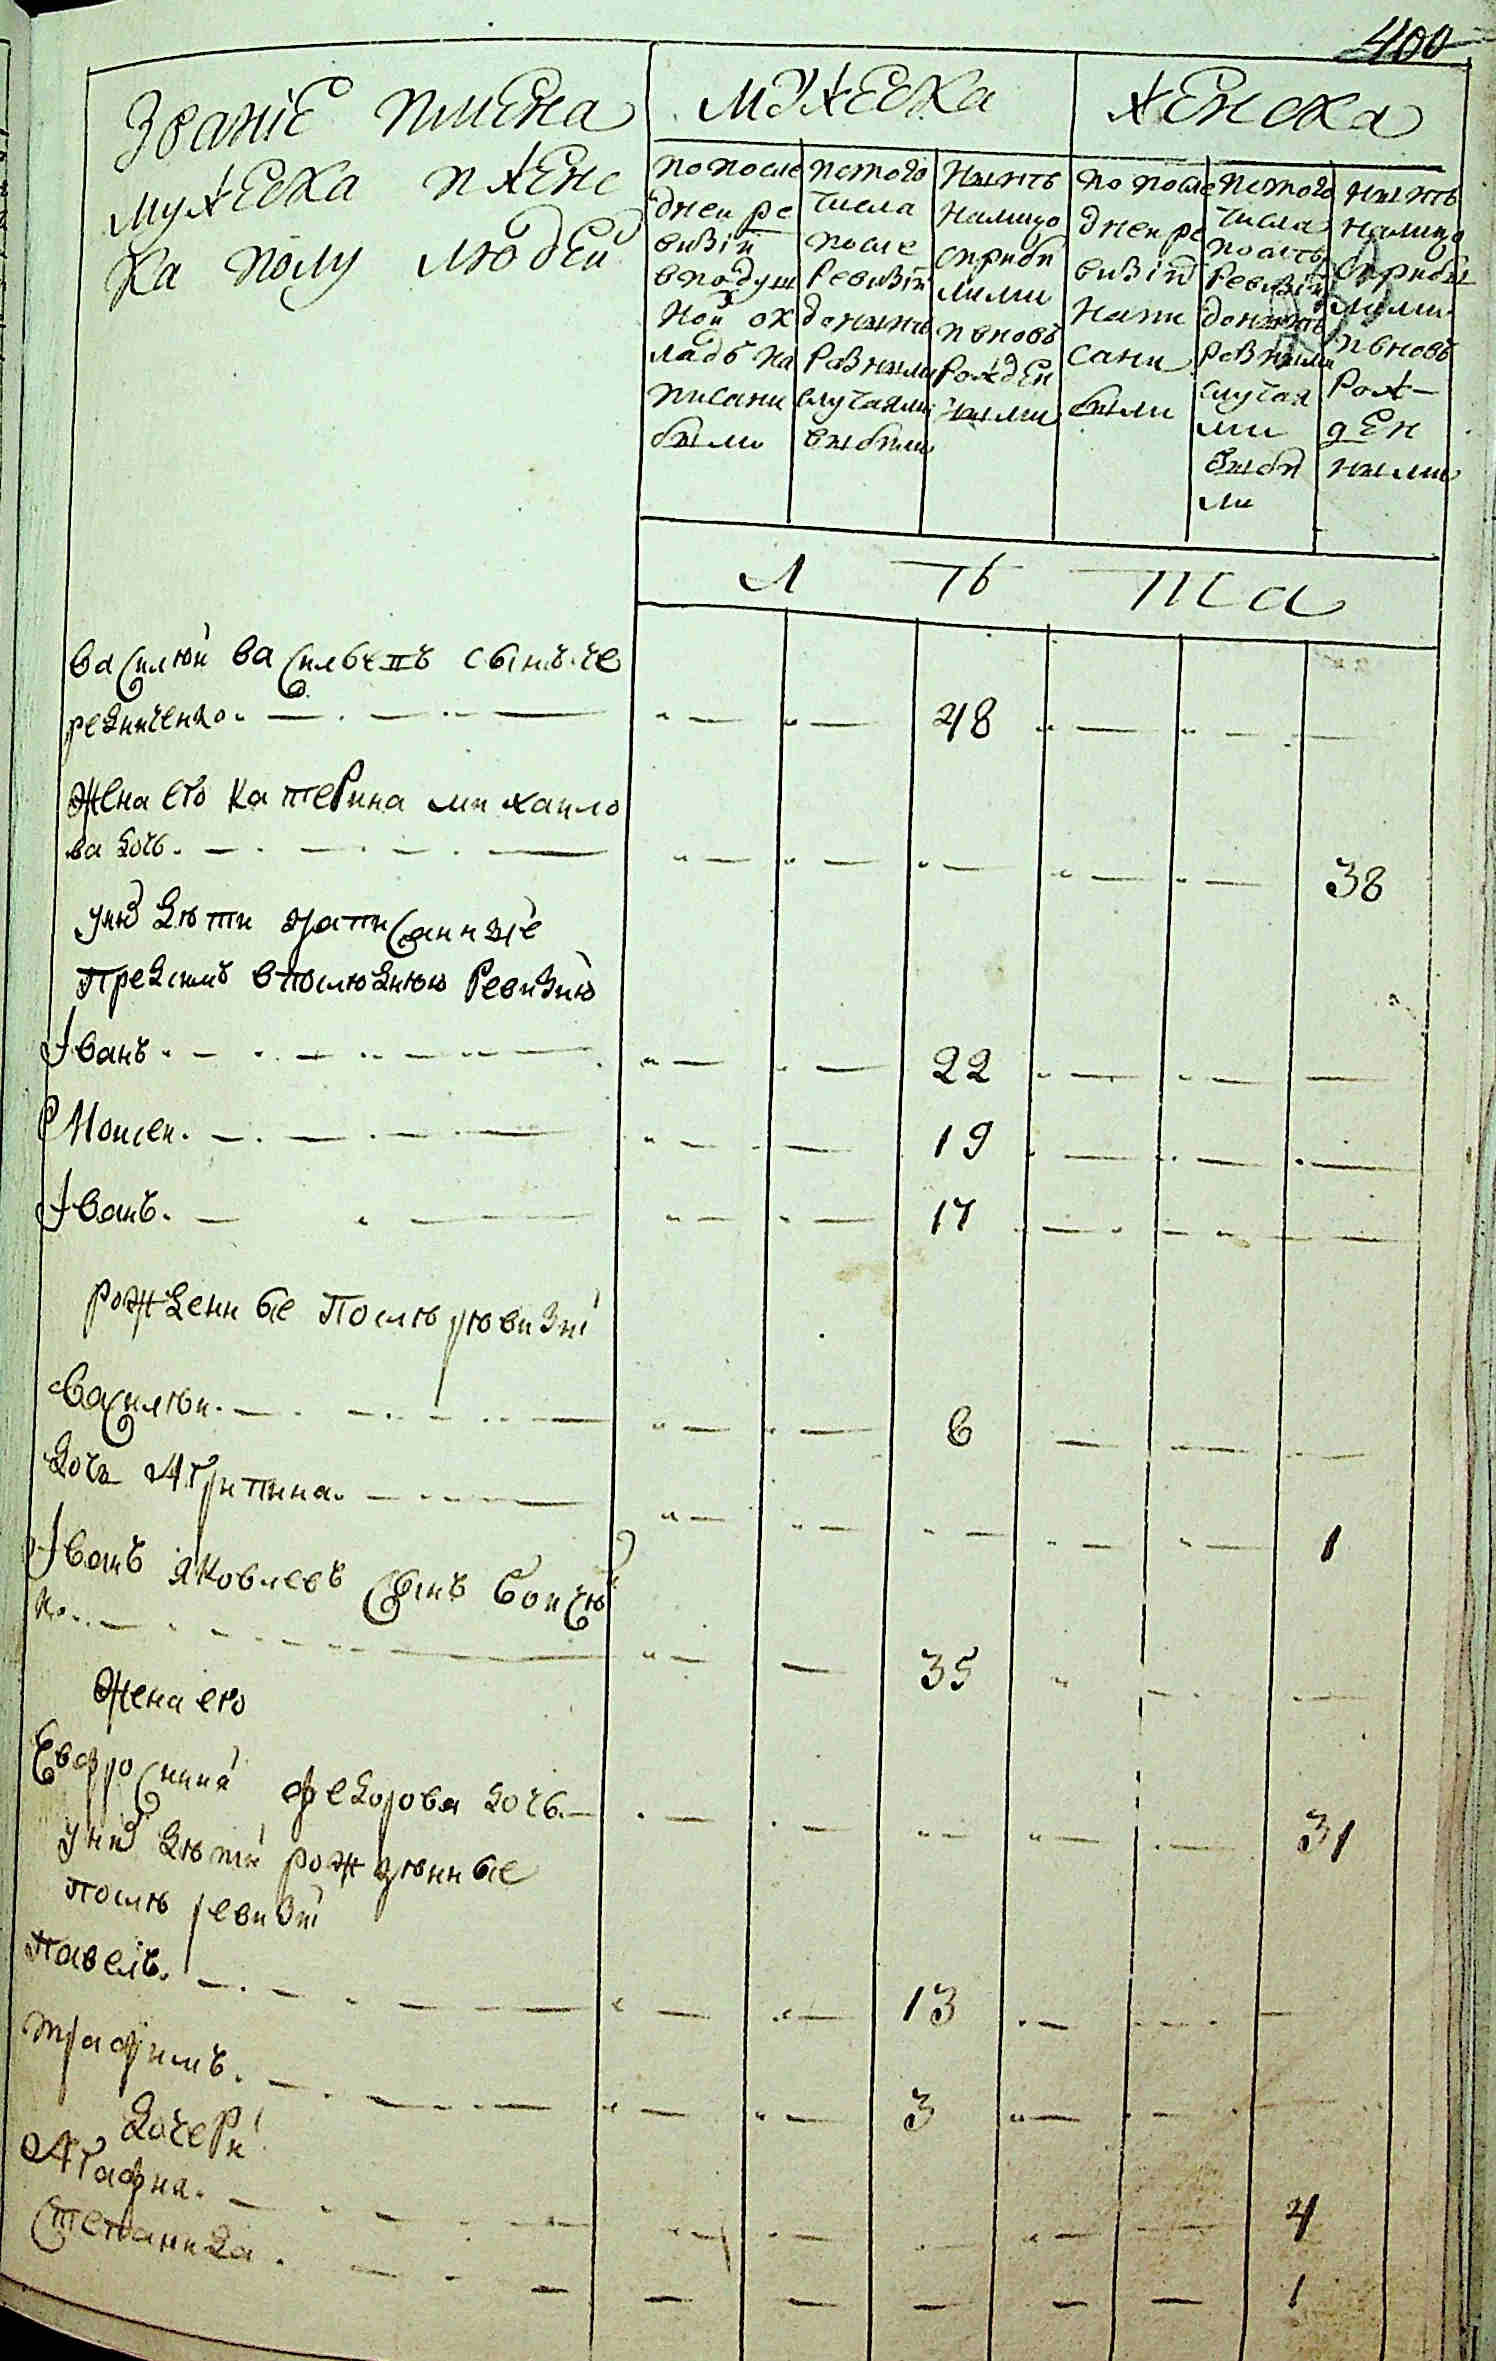 400
Званiе имена
мужеска и женс
ка полу людей
мужеска
женска
по после
дней ре
визiи
в подуш
ной ок
ладъ на
писани
были
ис того
числа
после
ревизiи
до нынъ
разными
случаями
выбыли
нынъ
налицо
с прибы
лыми
и вновь
рожден
ными
по после
дней ре
визiи
напи
сани
были
ис того
числа
посль
ревизiи
до нынъ
разными
случая
ми
выбы
ли
нынъ
налицо
с прибы
лыми
и вновь
рож-
ден
ными
л ѣ та
василѣй васильевъ сынъ че
редниченко 48
жена его катерина михайло
ва дочь 38
у них дѣти написанные
пред симъ в послѣднюю ревизию
Iванъ 22
Моисей 19
Iванъ 17
рожденные послѣ рѣвизiи
василѣй 6
дочь Агрипина 1
Iванъ яковлевъ сынъ бойчѣн
ко 35
жена его
Евфросиния федорова дочь 31
у них дѣти рождѣнные
послѣ ревизiи
павелъ 13
трафимъ 3
дочери
Агафия 4
степанида 1